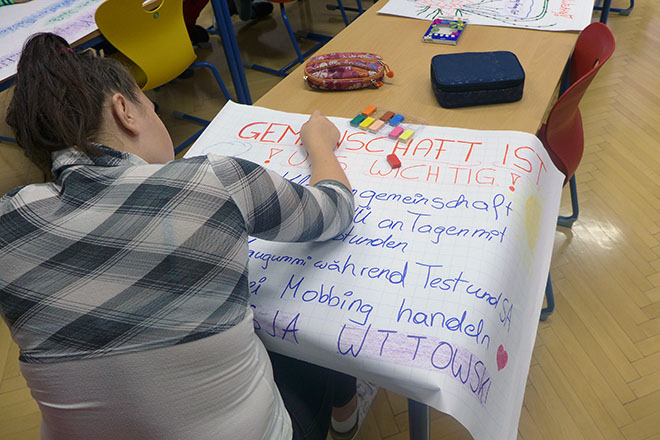 GEMEINSCHAFT IST
! UNS WICHTIG !
gemeinschaft
HÜ an Tagen mit
stunden
augummi während Test und SA
ei Mobbing handeln
SJA WITTOWSKI